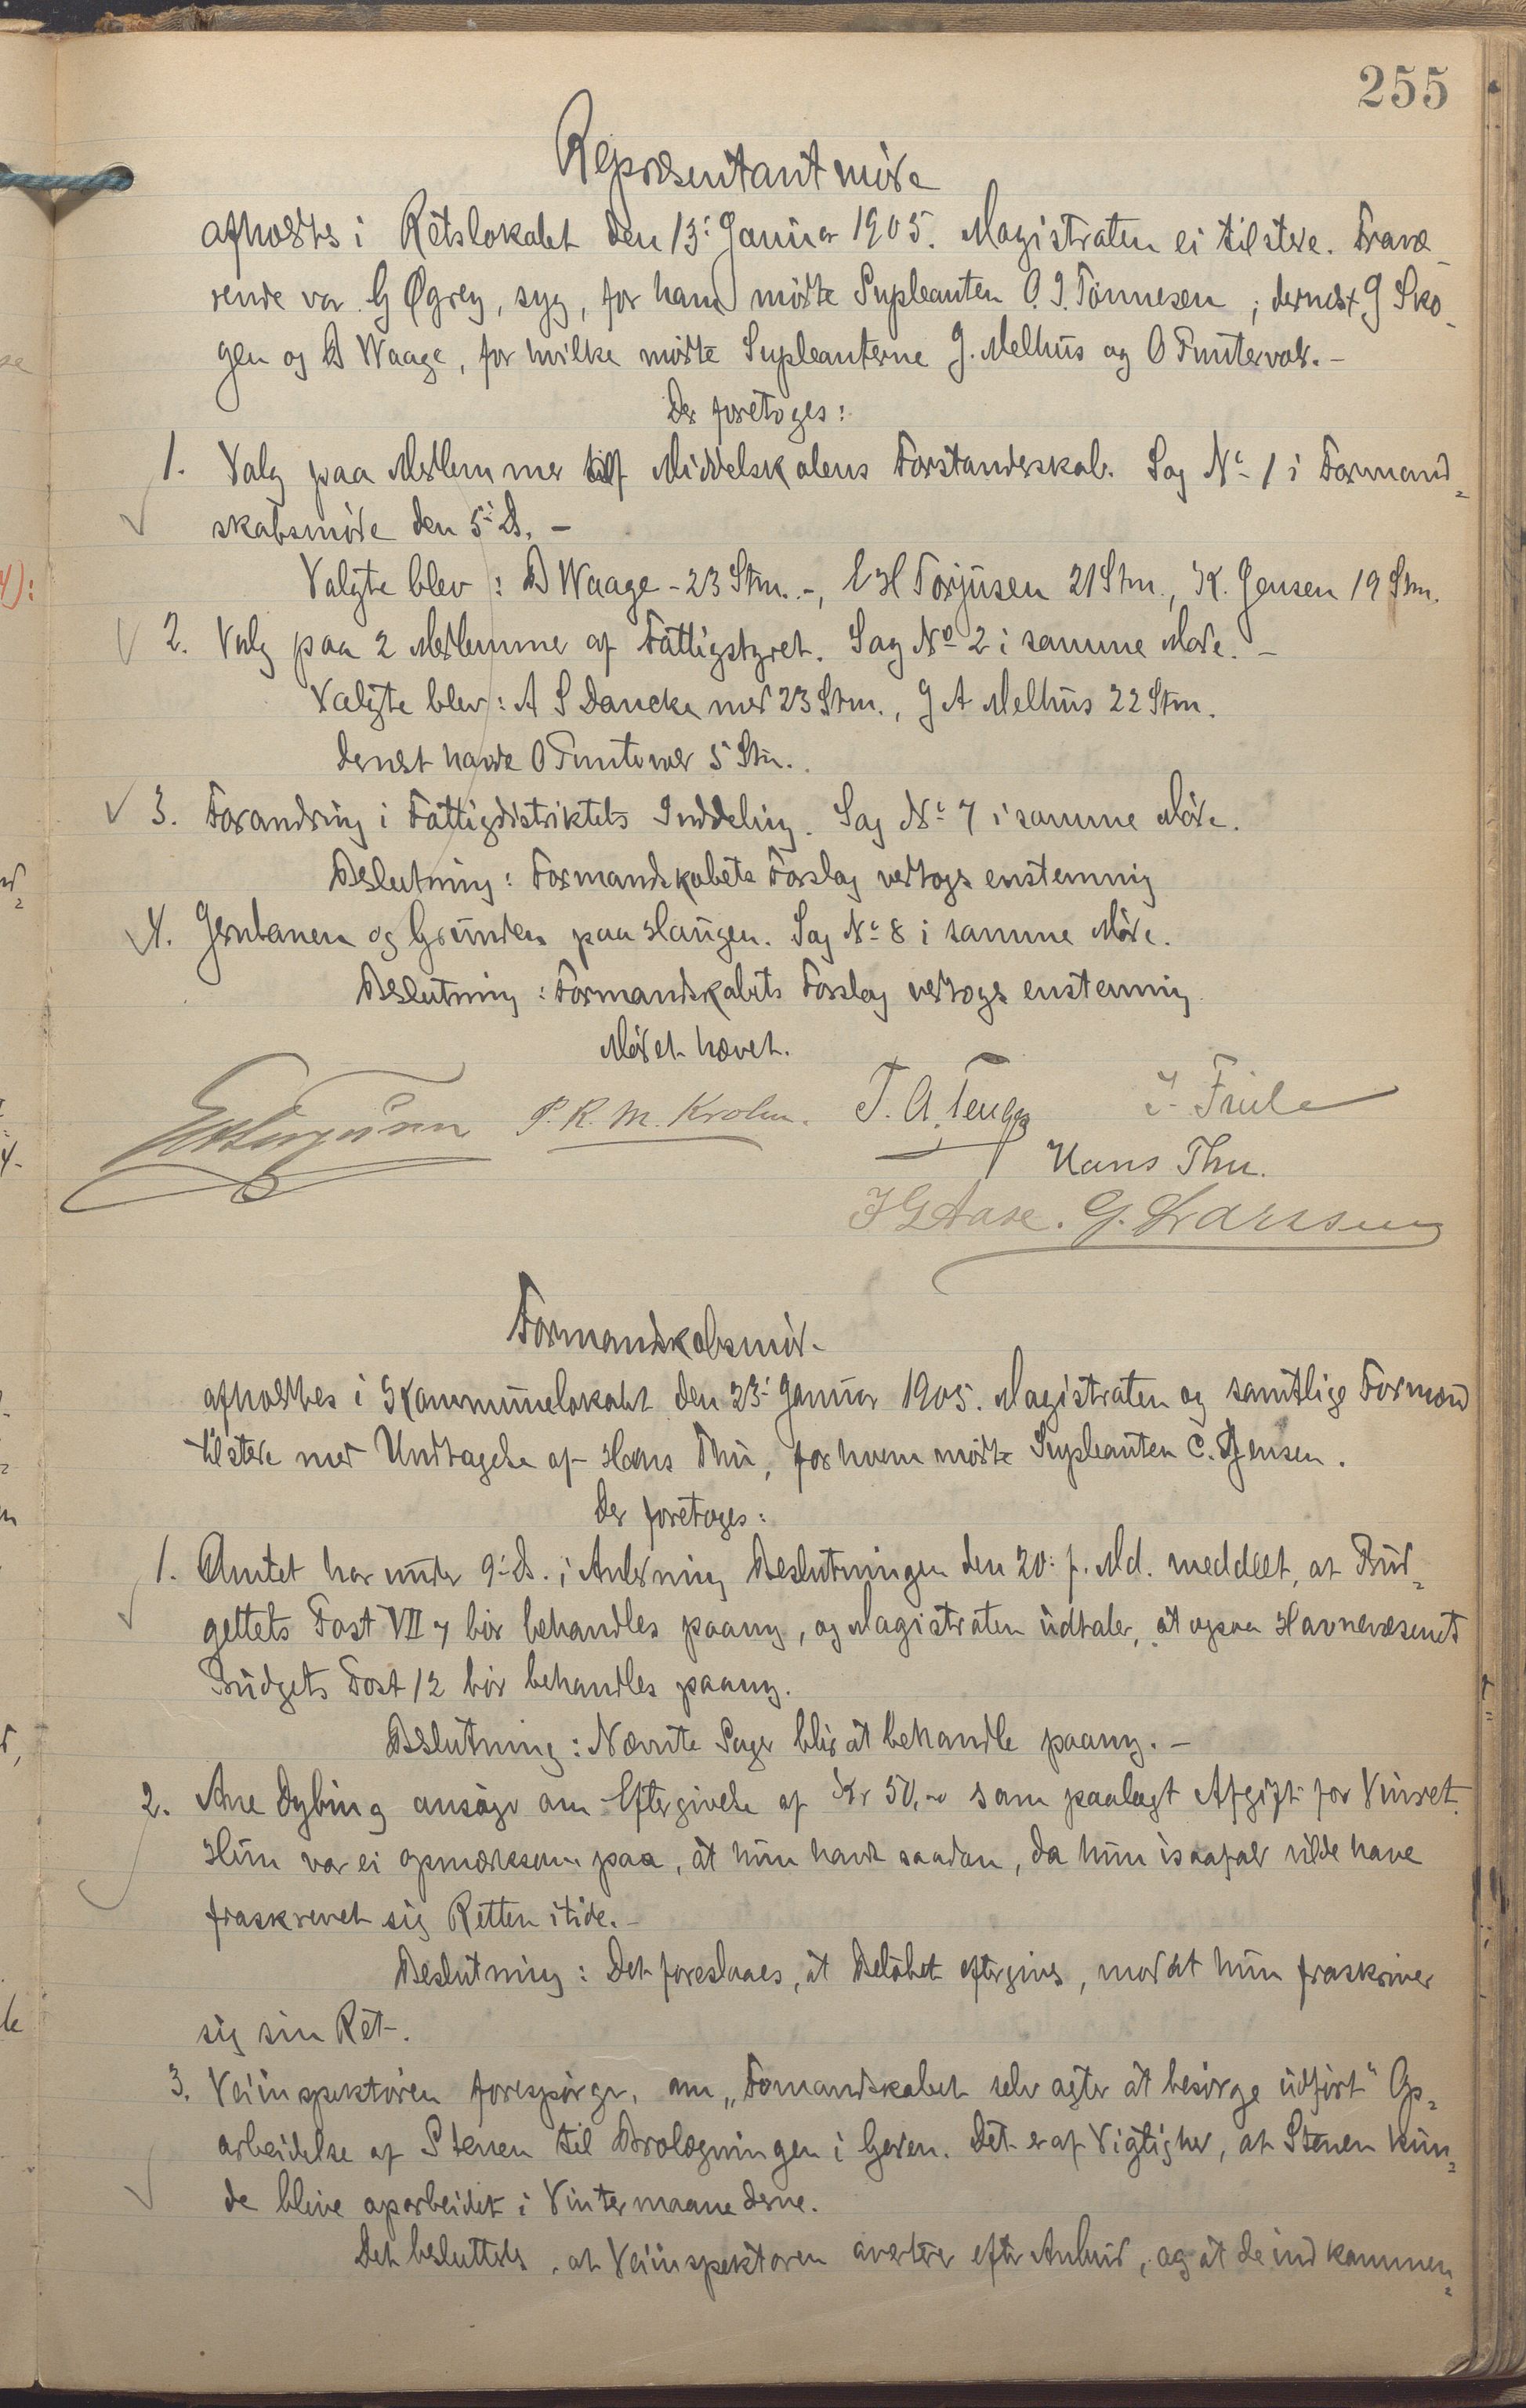 255
Repræsentantmöde
afholdtes i Retslokalet den 13: Januar 1905. Magistraten ei tilstede. Fravæ-
rende var G Øgrey, syg, for ham mödte Supleanten O. I. Tönnesen; dernæst G Sko-
gen og D Waage, for hvilke mödte Supleanterne J. Melhus og O Tuntevold. -
Der foretoges:
1. Valg paa Medlemmer af Middelskolens Forstanderskab. Sag No 1 i Formand-
skabsmöde den 5: ds. -
Valgte blev: D Waage - 23 Stm. -, E H Torjusen 21 Stm., K. Jensen 19 Stm.
2. Valg paa 2 Medlemmer af Fattigstyret. Sag No 2 i samme Möde. -
Valgte blev: A S Dancke med 23 Stm., J A Melhus 22 Stm.
dernæst havde O Tuntevold 5 Stm.
3. Forandring i Fattigdistriktets Inddeling. Sag No 7 i samme Möde.
Beslutning: Formandskabets Forslag vedtoges enstemmig
4. Jernbanen og Grunden paa Haugen. Sag No 8 i samme Möde.
Beslutning: Formandskabets Forslag vedtoges enstemmig.
Mödet hævet.
E H Torjusen P. R. M. Krohn. T. A. I. Friele
Hans Thu.
I G Aase. G. Larssen
Formandskabsmöde
afholdtes i Kommunelokalet den 23: Januar 1905. Magistraten og samtlige Formænd
tilstede med Undtagelse af Hans Thu, for hvem mödte Supleanten C. Jensen.
Der foretoges:
1. Amtet har under 9: ds. i Anledning Beslutningen den 20: f. Md. meddelt, at Bud-
gettets Post VII 7 bör behandles paany, og Magistraten udtaler, at ogsaa Havnevæsenets
Budgets Post 12 bör behandles paany.
Beslutning: Nævnte Sager blir at behandle paany. -
2. Ane Dybing ansöger om Eftergivelse af Kr 50,00 som paalagt Afgift for Vinret.
Hun var ei opmærksom paa, at hun havde saadan, da hun isaafald vilde have
fraskrevet sig Retten itide. -
Beslutning: Det foreslaaes, at Belöbet eftergives, mod at hun fraskriver
sig sin Ret -.
3. Veiinspektören forespörger, om „Fomandskabet selv agter at besörge udfört" Op-
arbeidelse af Stenen til Brolægningen i Gaden. Det er af Vigtighed, at Stenen kun-
de blive oparbeidet i Vintermaanederne.
Det besluttedes, at Veiinspektören averterer efter Anbud, og at de indkommen-